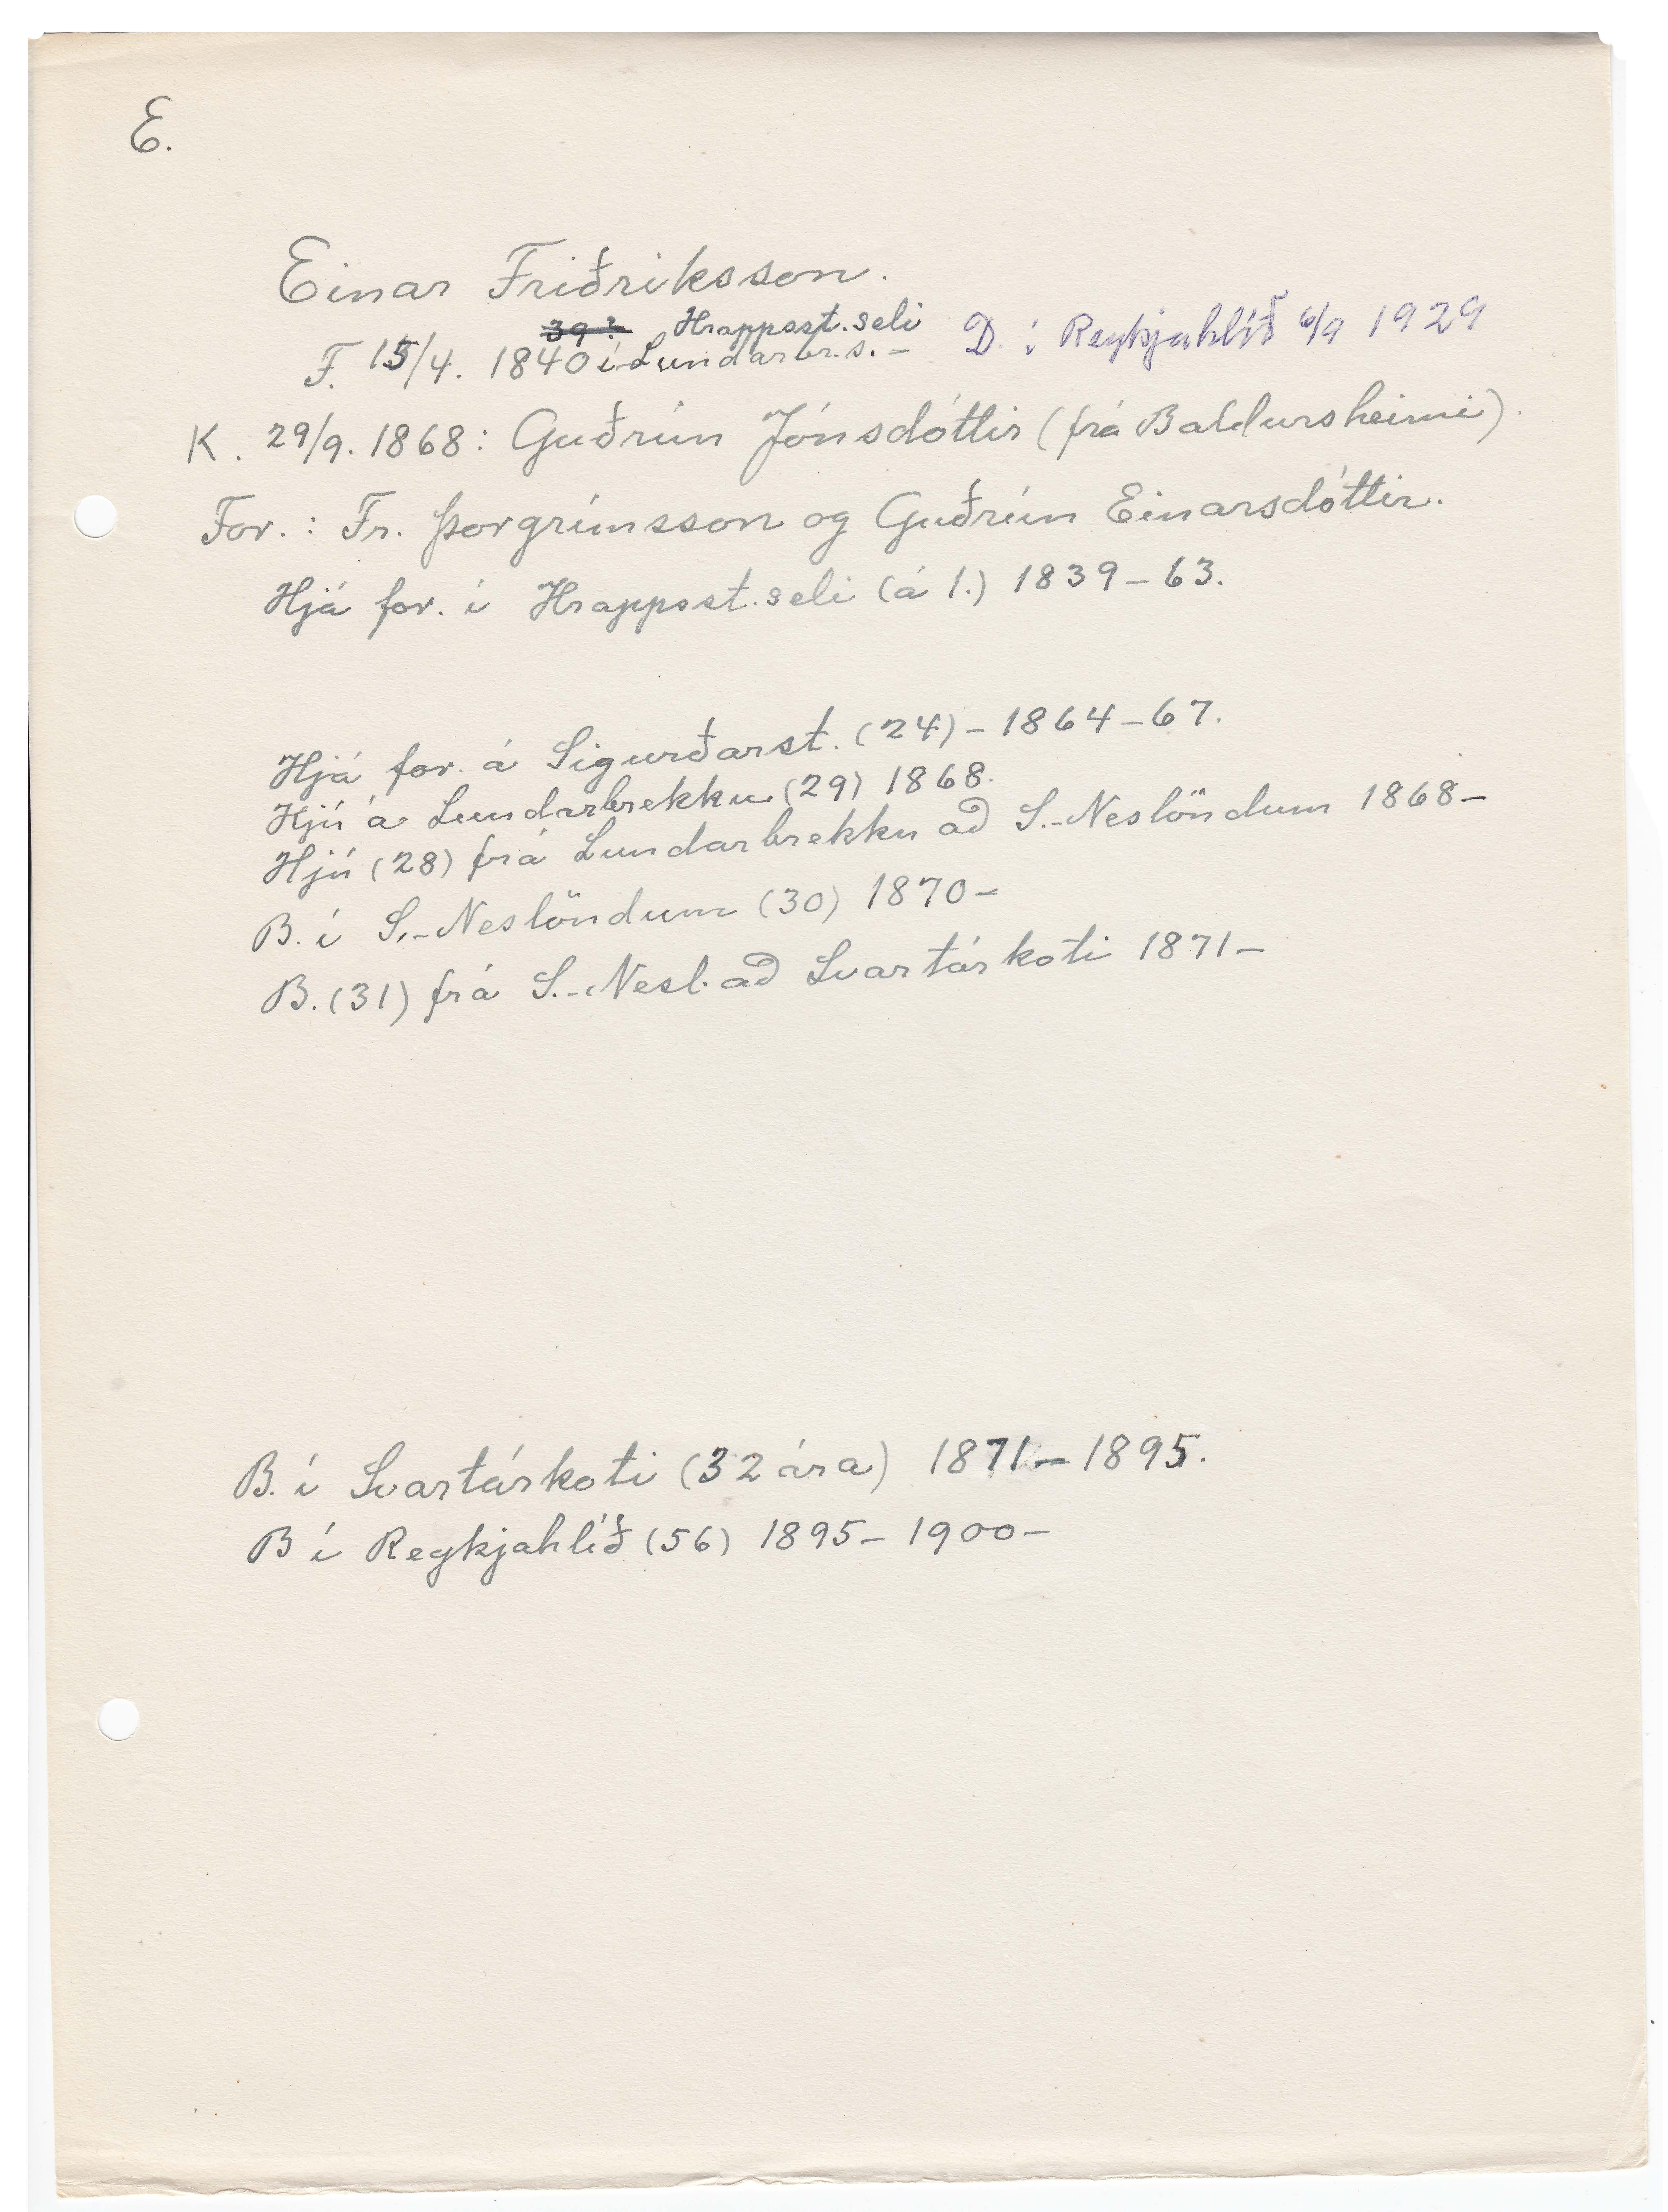 E.
Einar Friðriksson.
39? Hrappsst.seli
F. 15/4. 1840 í Lundarbr.s. – D. í Reykjahlíð 6/9 1929
K. 29/9. 1868: Guðrún Jónsdóttir (frá Baldursheimi).
For.: Fr. Þorgrímsson og Guðrún Einarsdóttir.
Hjá for. í Hrappsst.seli (á 1.) 1839–63.
Hjá for. á Sigurðarst. (24) – 1864–67.
Hjú á Lundarbrekku (29) 1868.
Hjú (28) frá Lundarbrekku að S.-Neslöndum 1868–
B. í S.-Neslöndum (30) 1870–
B. (31) frá S.-Nesl. að Svartárkoti 1871–
B. í Svartárkoti (32 ára) 1871–1895.
B í Reykjahlíð (56) 1895–1900–